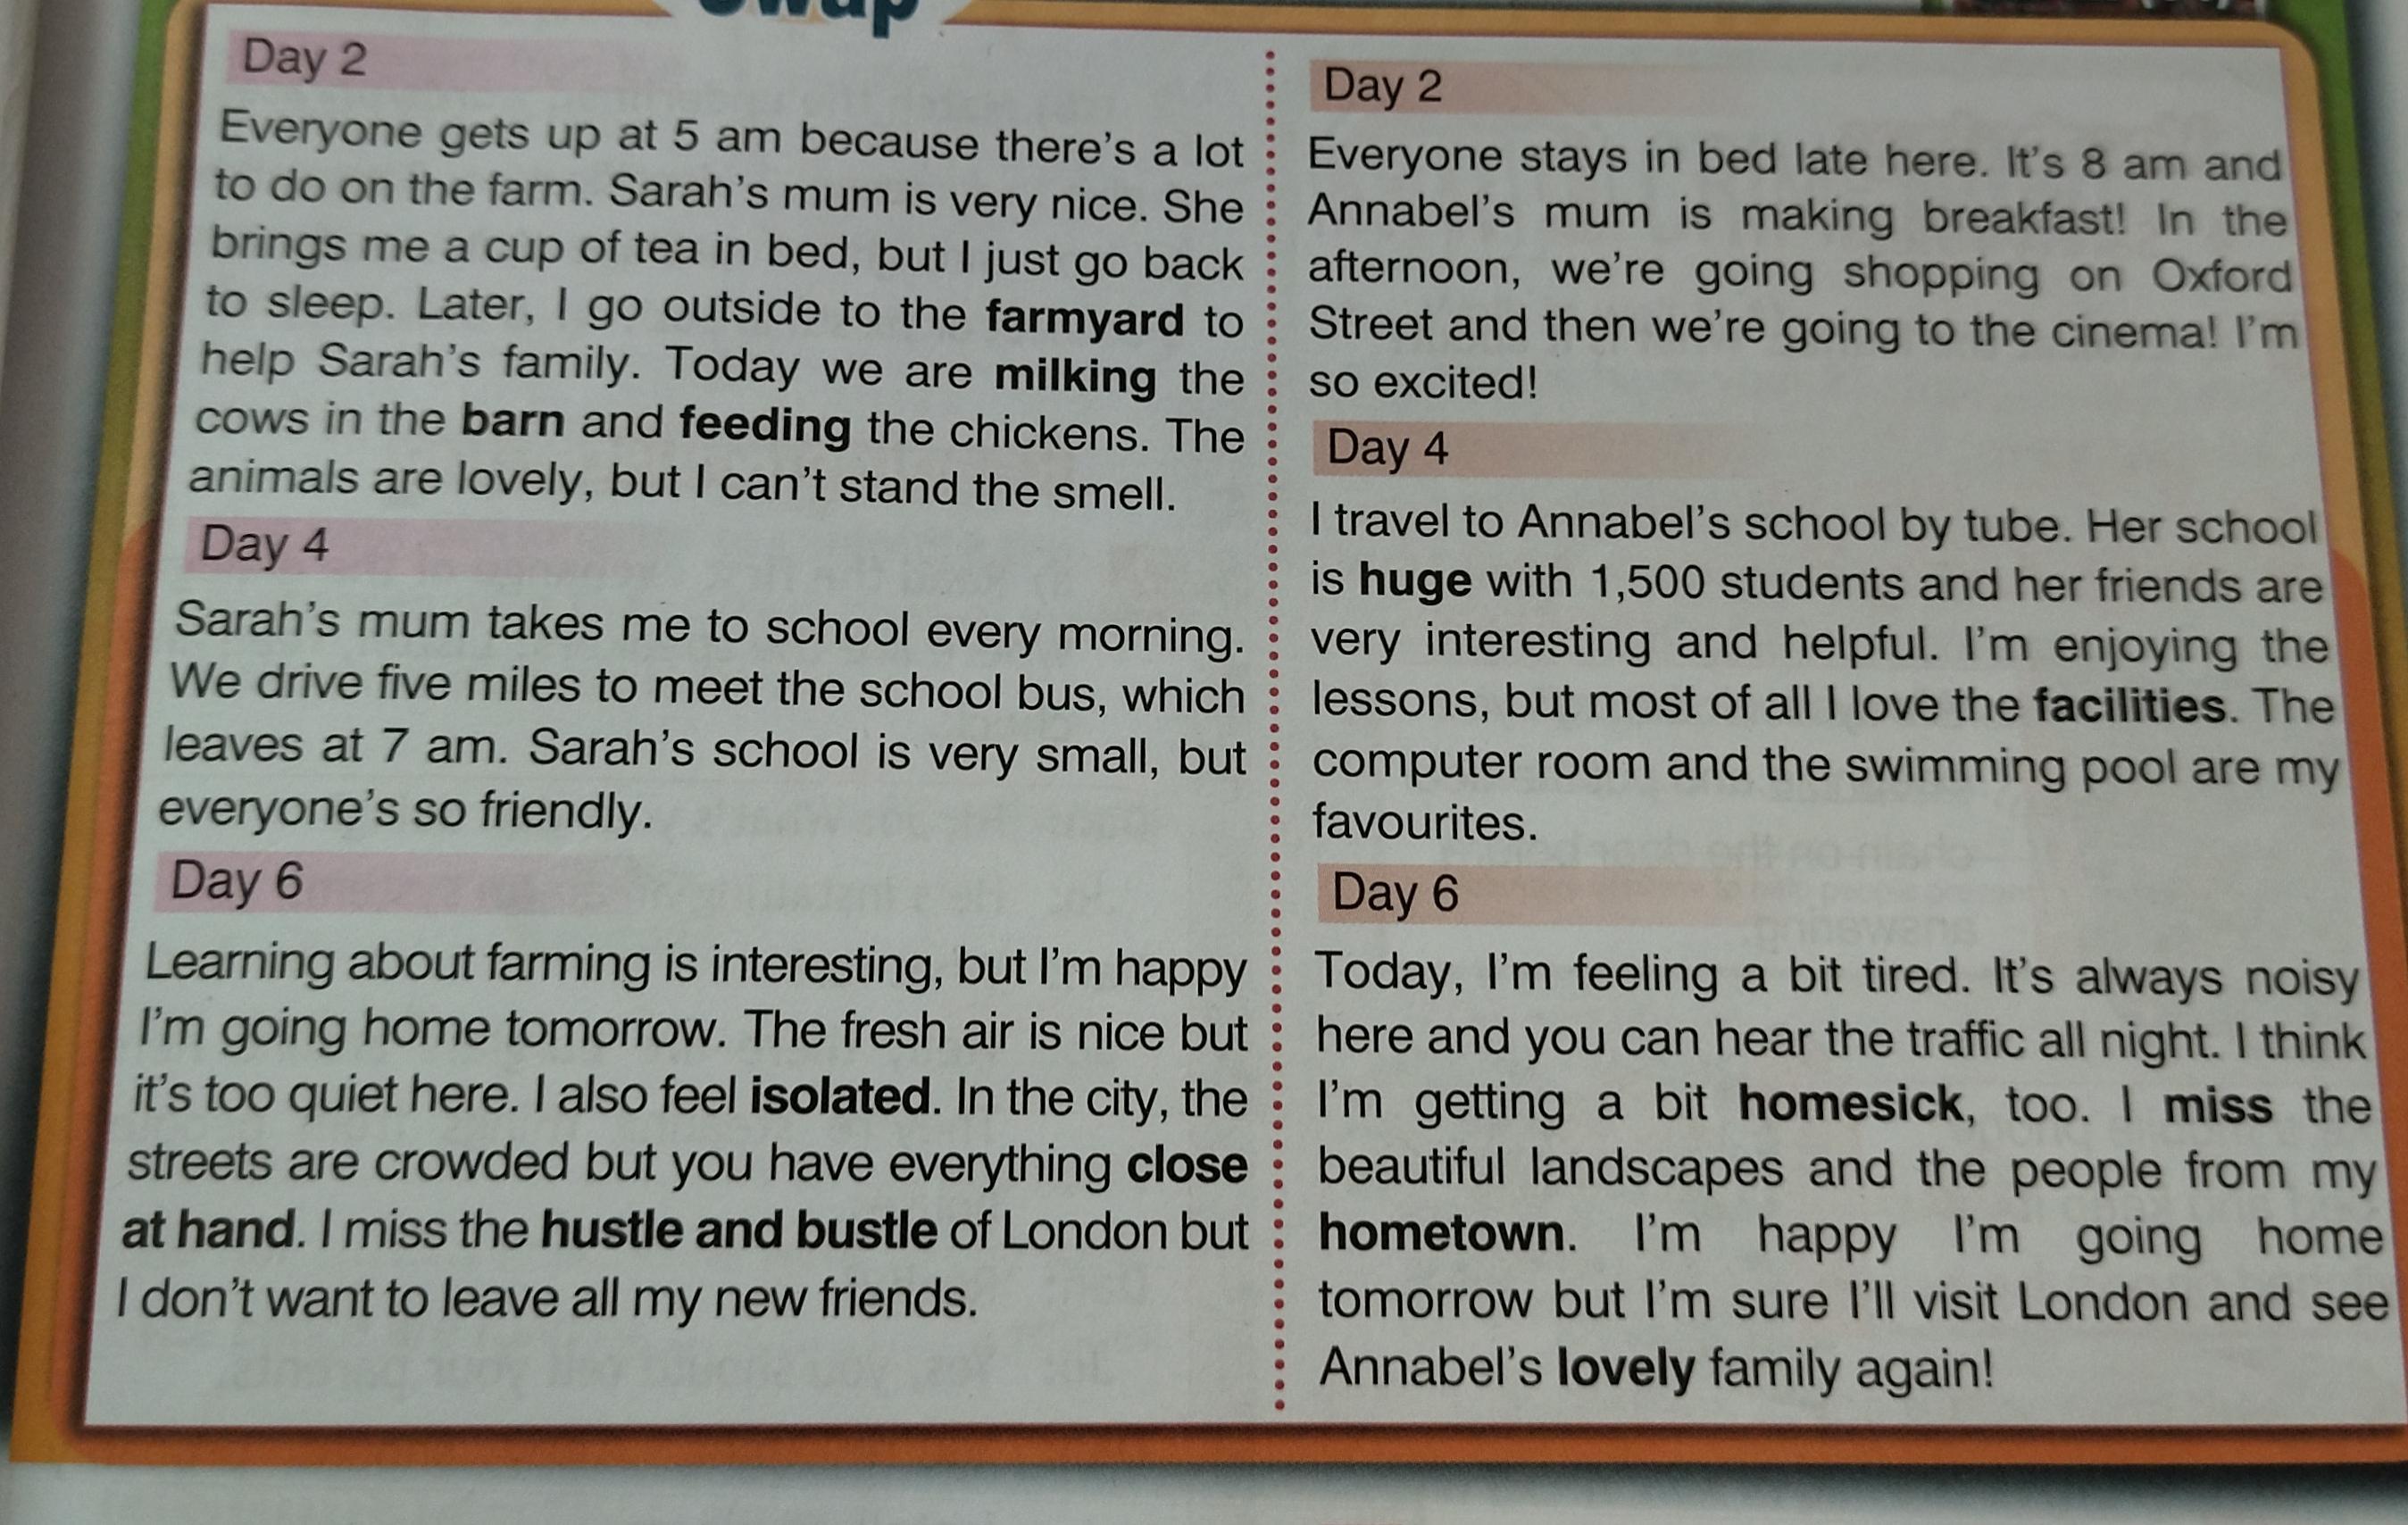 Day 2
Everyone gets up at 5 am because there's a lot
to do on the farm. Sarah's mum is very nice. She
brings me a cup of tea in bed, but I just go back
to sleep. Later, I go outside to the farmyard to
help Sarah's family. Today we are milking the
cows in the barn and feeding the chickens. The
animals are lovely, but I can't stand the smell.
Day 4
Sarah's mum takes me to school every morning.
We drive five miles to meet the school bus, which
leaves at 7 am. Sarah's school is very small, but
everyone's so friendly.
Day 6
Learning about farming is interesting, but I'm happy
I'm going home tomorrow. The fresh air is nice but
it's too quiet here. I also feel isolated. In the city, the
streets are crowded but you have everything close
at hand. I miss the hustle and bustle of London but
I don't want to leave all my new friends.
Day 2
Everyone stays in bed late here. It's 8 am and
Annabel's mum is making breakfast! In the
afternoon, we're going shopping on Oxford
Street and then we're going to the cinema! I'm
so excited!
Day 4
I travel to Annabel's school by tube. Her school
is huge with 1,500 students and her friends are
very interesting and helpful. I'm enjoying the
lessons, but most of all I love the facilities. The
computer room and the swimming pool are my
favourites.
Day 6
Today, I'm feeling a bit tired. It's always noisy
here and you can hear the traffic all night. I think
I'm getting a bit homesick, too. I miss the
beautiful landscapes and the people from my
hometown. I'm happy I'm going home
tomorrow but I'm sure I'll visit London and see
Annabel's lovely family again!